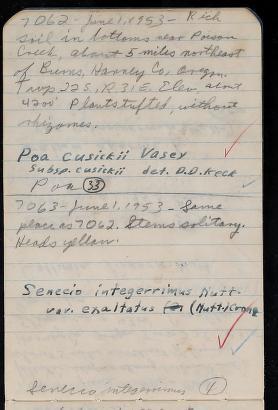 7062 - June 1, 1953 - Rich
soil in bottoms near Poison
Creek, about 5 miles northeast
of Burns, Harney Co., Oregon.
Twp 22S, R.31E. Elev. about
4200' Plants tufted, without
rhizomes.
Poa cusickii Vasey
subsp. cusickii det. D.D. Keck
Poa 33
7063 - June 1, 1953 - Same
place as 7062. Stems solitary.
Heads yellow.
Senecio integerrimus Nutt.
var. exaltatus (Nutt.) Cronq
Senecio integerrimus 1